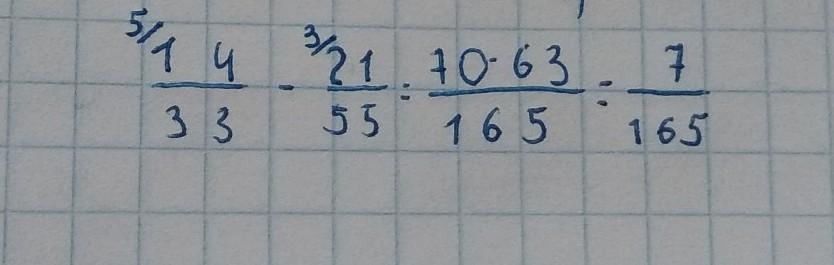 5/ 14/33 - 3/ 21/55 = 70-63/165 = 7/165